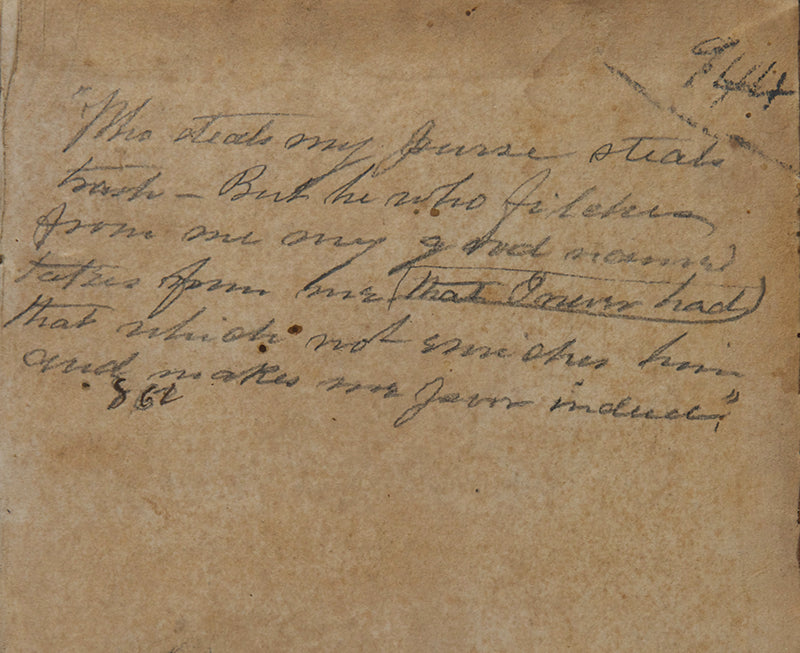 "Who steals my purse steals
trash – But he who filches
from me my good name
takes from me (that I never had)
that which not enriches him
and makes me poor indeed."